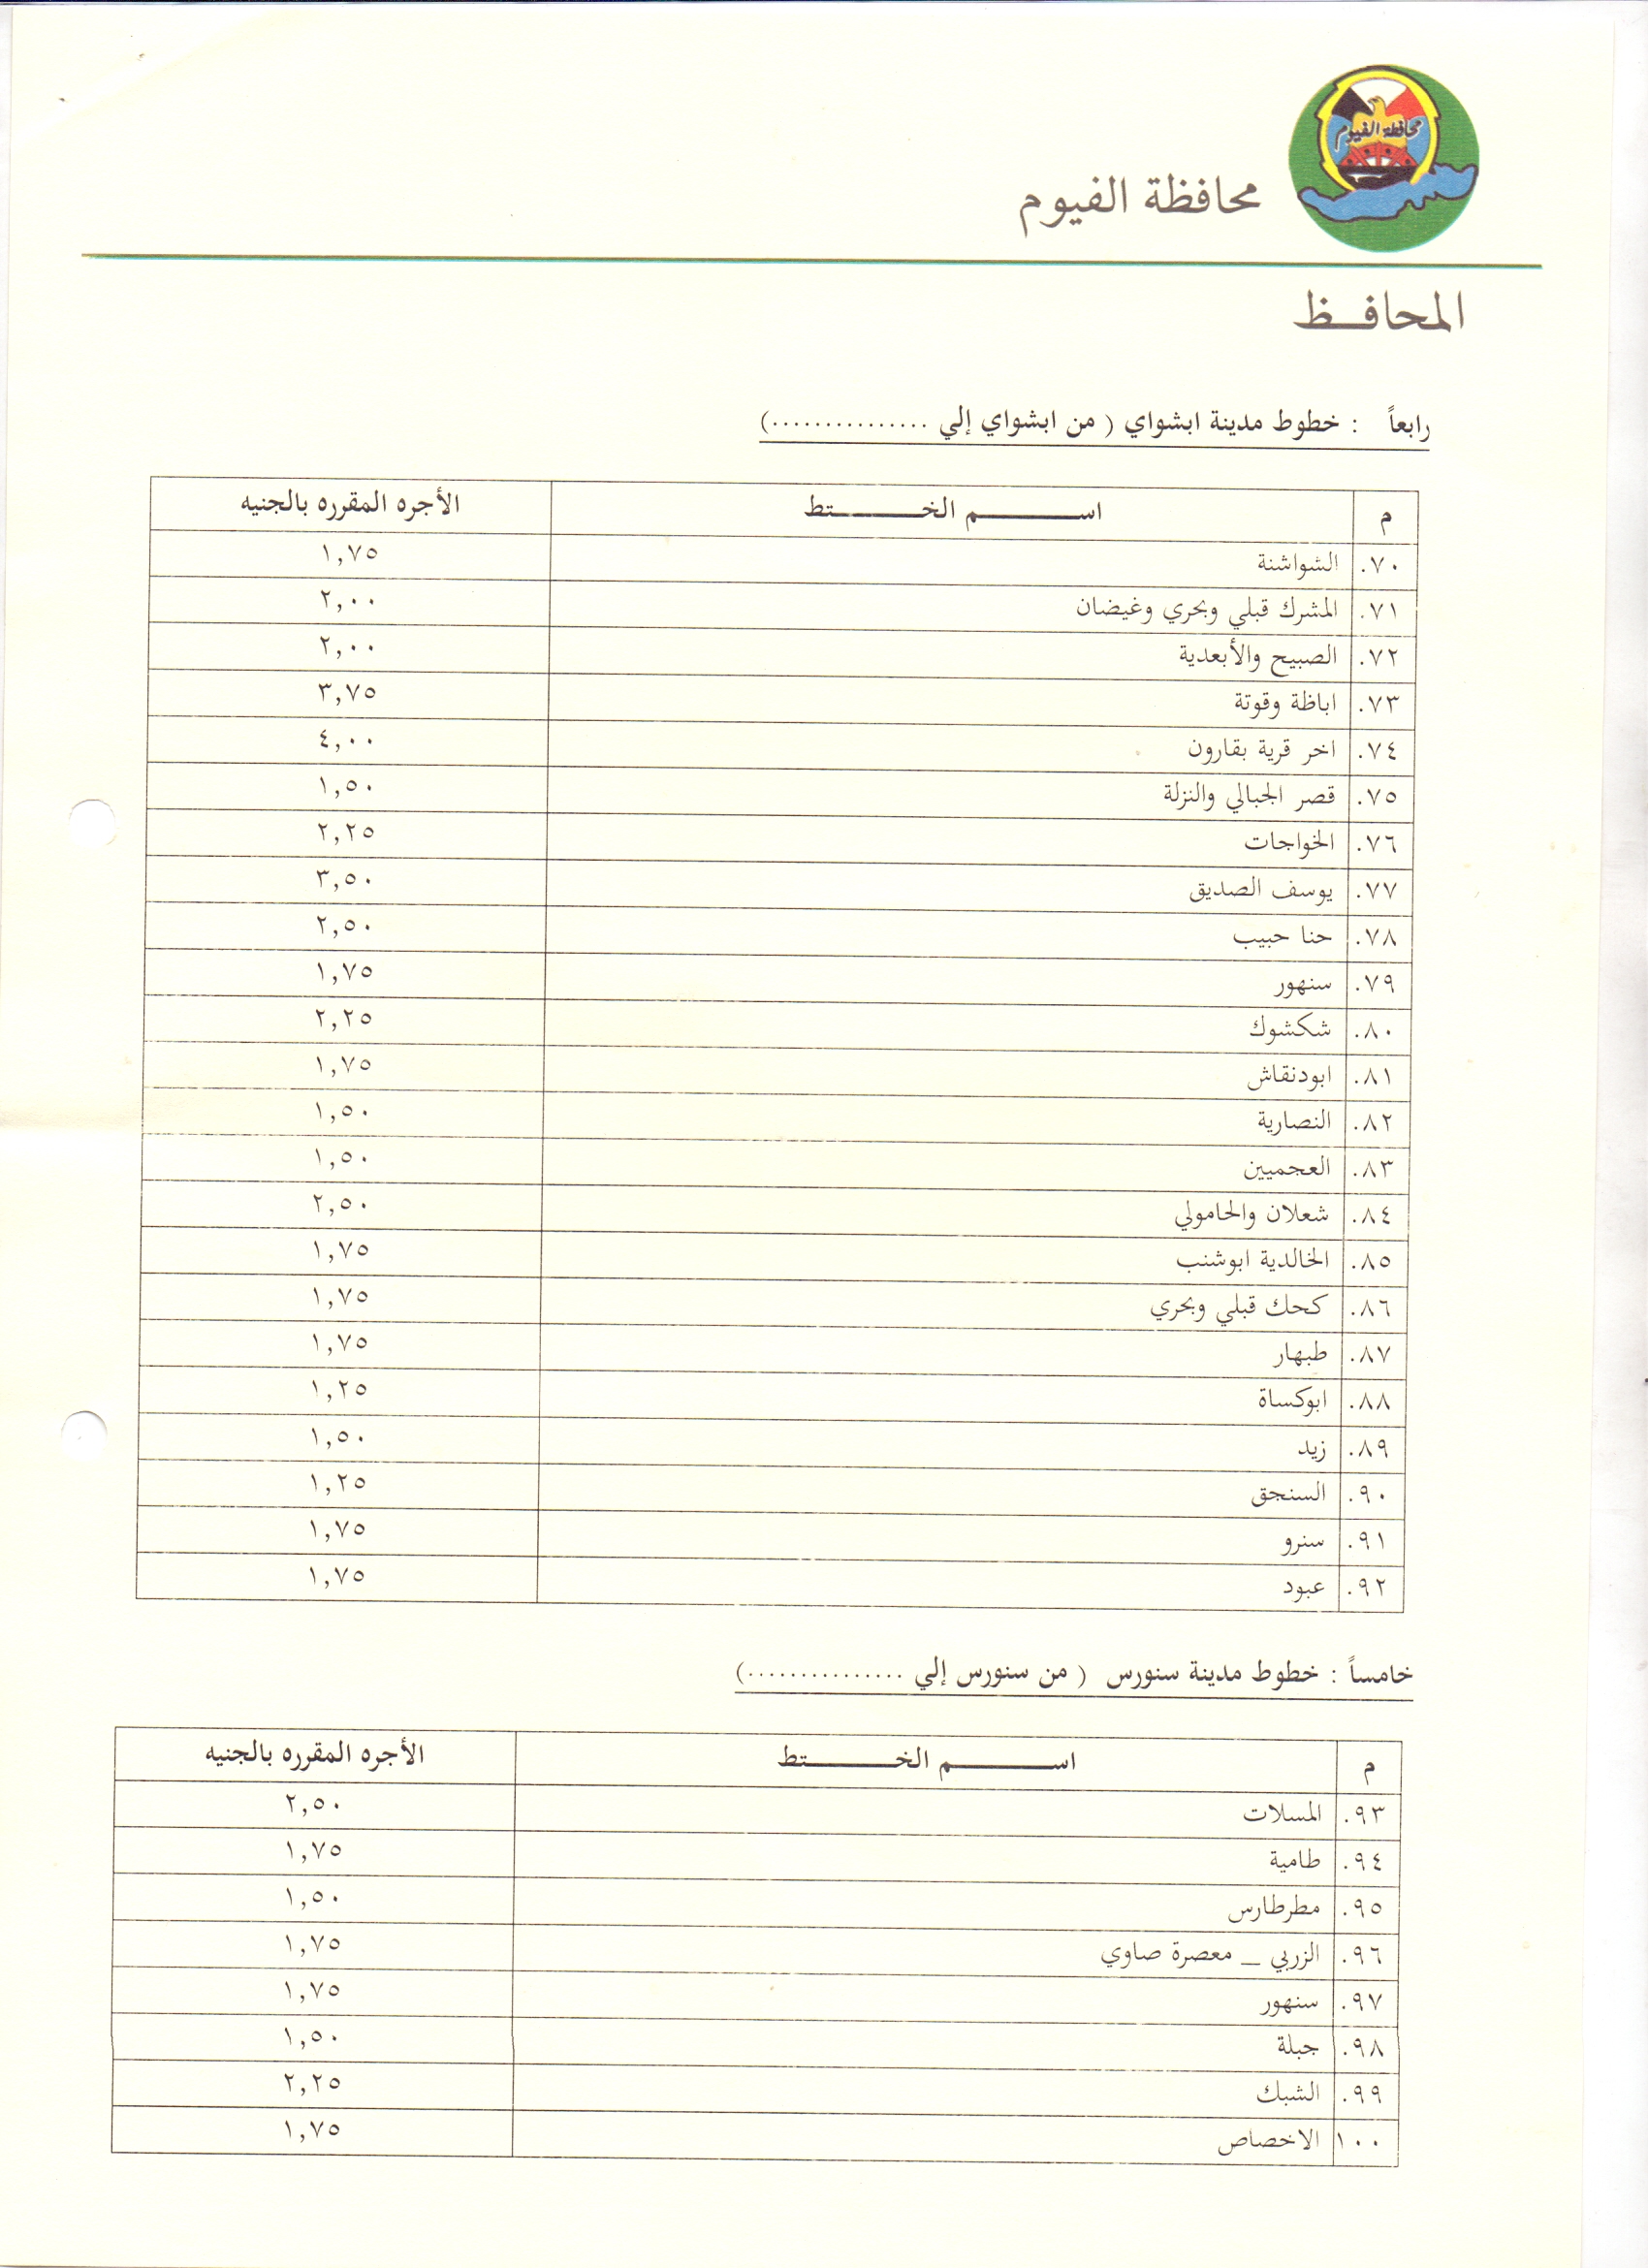 محافظة الفيوم
محافظة الفيوم
المحافـــظ
رابعاً : خطوط مدينة ابشواي ( من ابشواي إلي ...............)
م اســــــــم الخــــــــتط الأجره المقرره بالجنيه
٧٠. الشواشنة ١,٧٥
٧١. المشرك قبلي وبحري وغيضان ٢,٠٠
٧٢. الصبيح والأبعدية ٢,٠٠
٧٣. اباظة وقوتة ٣,٧٥
٧٤. اخر قرية بقارون ٤,٠٠
٧٥. قصر الجبالي والنزلة ١,٥٠
٧٦. الخواجات ٢,٢٥
٧٧. يوسف الصديق ٣,٥٠
٧٨. حنا حبيب ٢,٥٠
٧٩. سنهور ١,٧٥
٨٠. شكشوك ٢,٢٥
٨١. ابودنقاش ١,٧٥
٨٢. النصارية ١,٥٠
٨٣. العجميين ١,٥٠
٨٤. شعلان والحامولي ٢,٥٠
٨٥. الخالدية ابوشنب ١,٧٥
٨٦. كحك قبلي وبحري ١,٧٥
٨٧. طبهار ١,٧٥
٨٨. ابوكساة ١,٢٥
٨٩. زيد ١,٥٠
٩٠. السنجق ١,٢٥
٩١. سنرو ١,٧٥
٩٢. عبود ١,٧٥
خامساً : خطوط مدينة سنورس ( من سنورس إلي ...............)
م اســــــــم الخــــــــتط الأجره المقرره بالجنيه
٩٣. المسلات ٢,٥٠
٩٤. طامية ١,٧٥
٩٥. مطرطارس ١,٥٠
٩٦. الزربي _ معصرة صاوي ١,٧٥
٩٧. سنهور ١,٧٥
٩٨. جبلة ١,٥٠
٩٩. الشبك ٢,٢٥
١٠٠ الاخصاص ١,٧٥